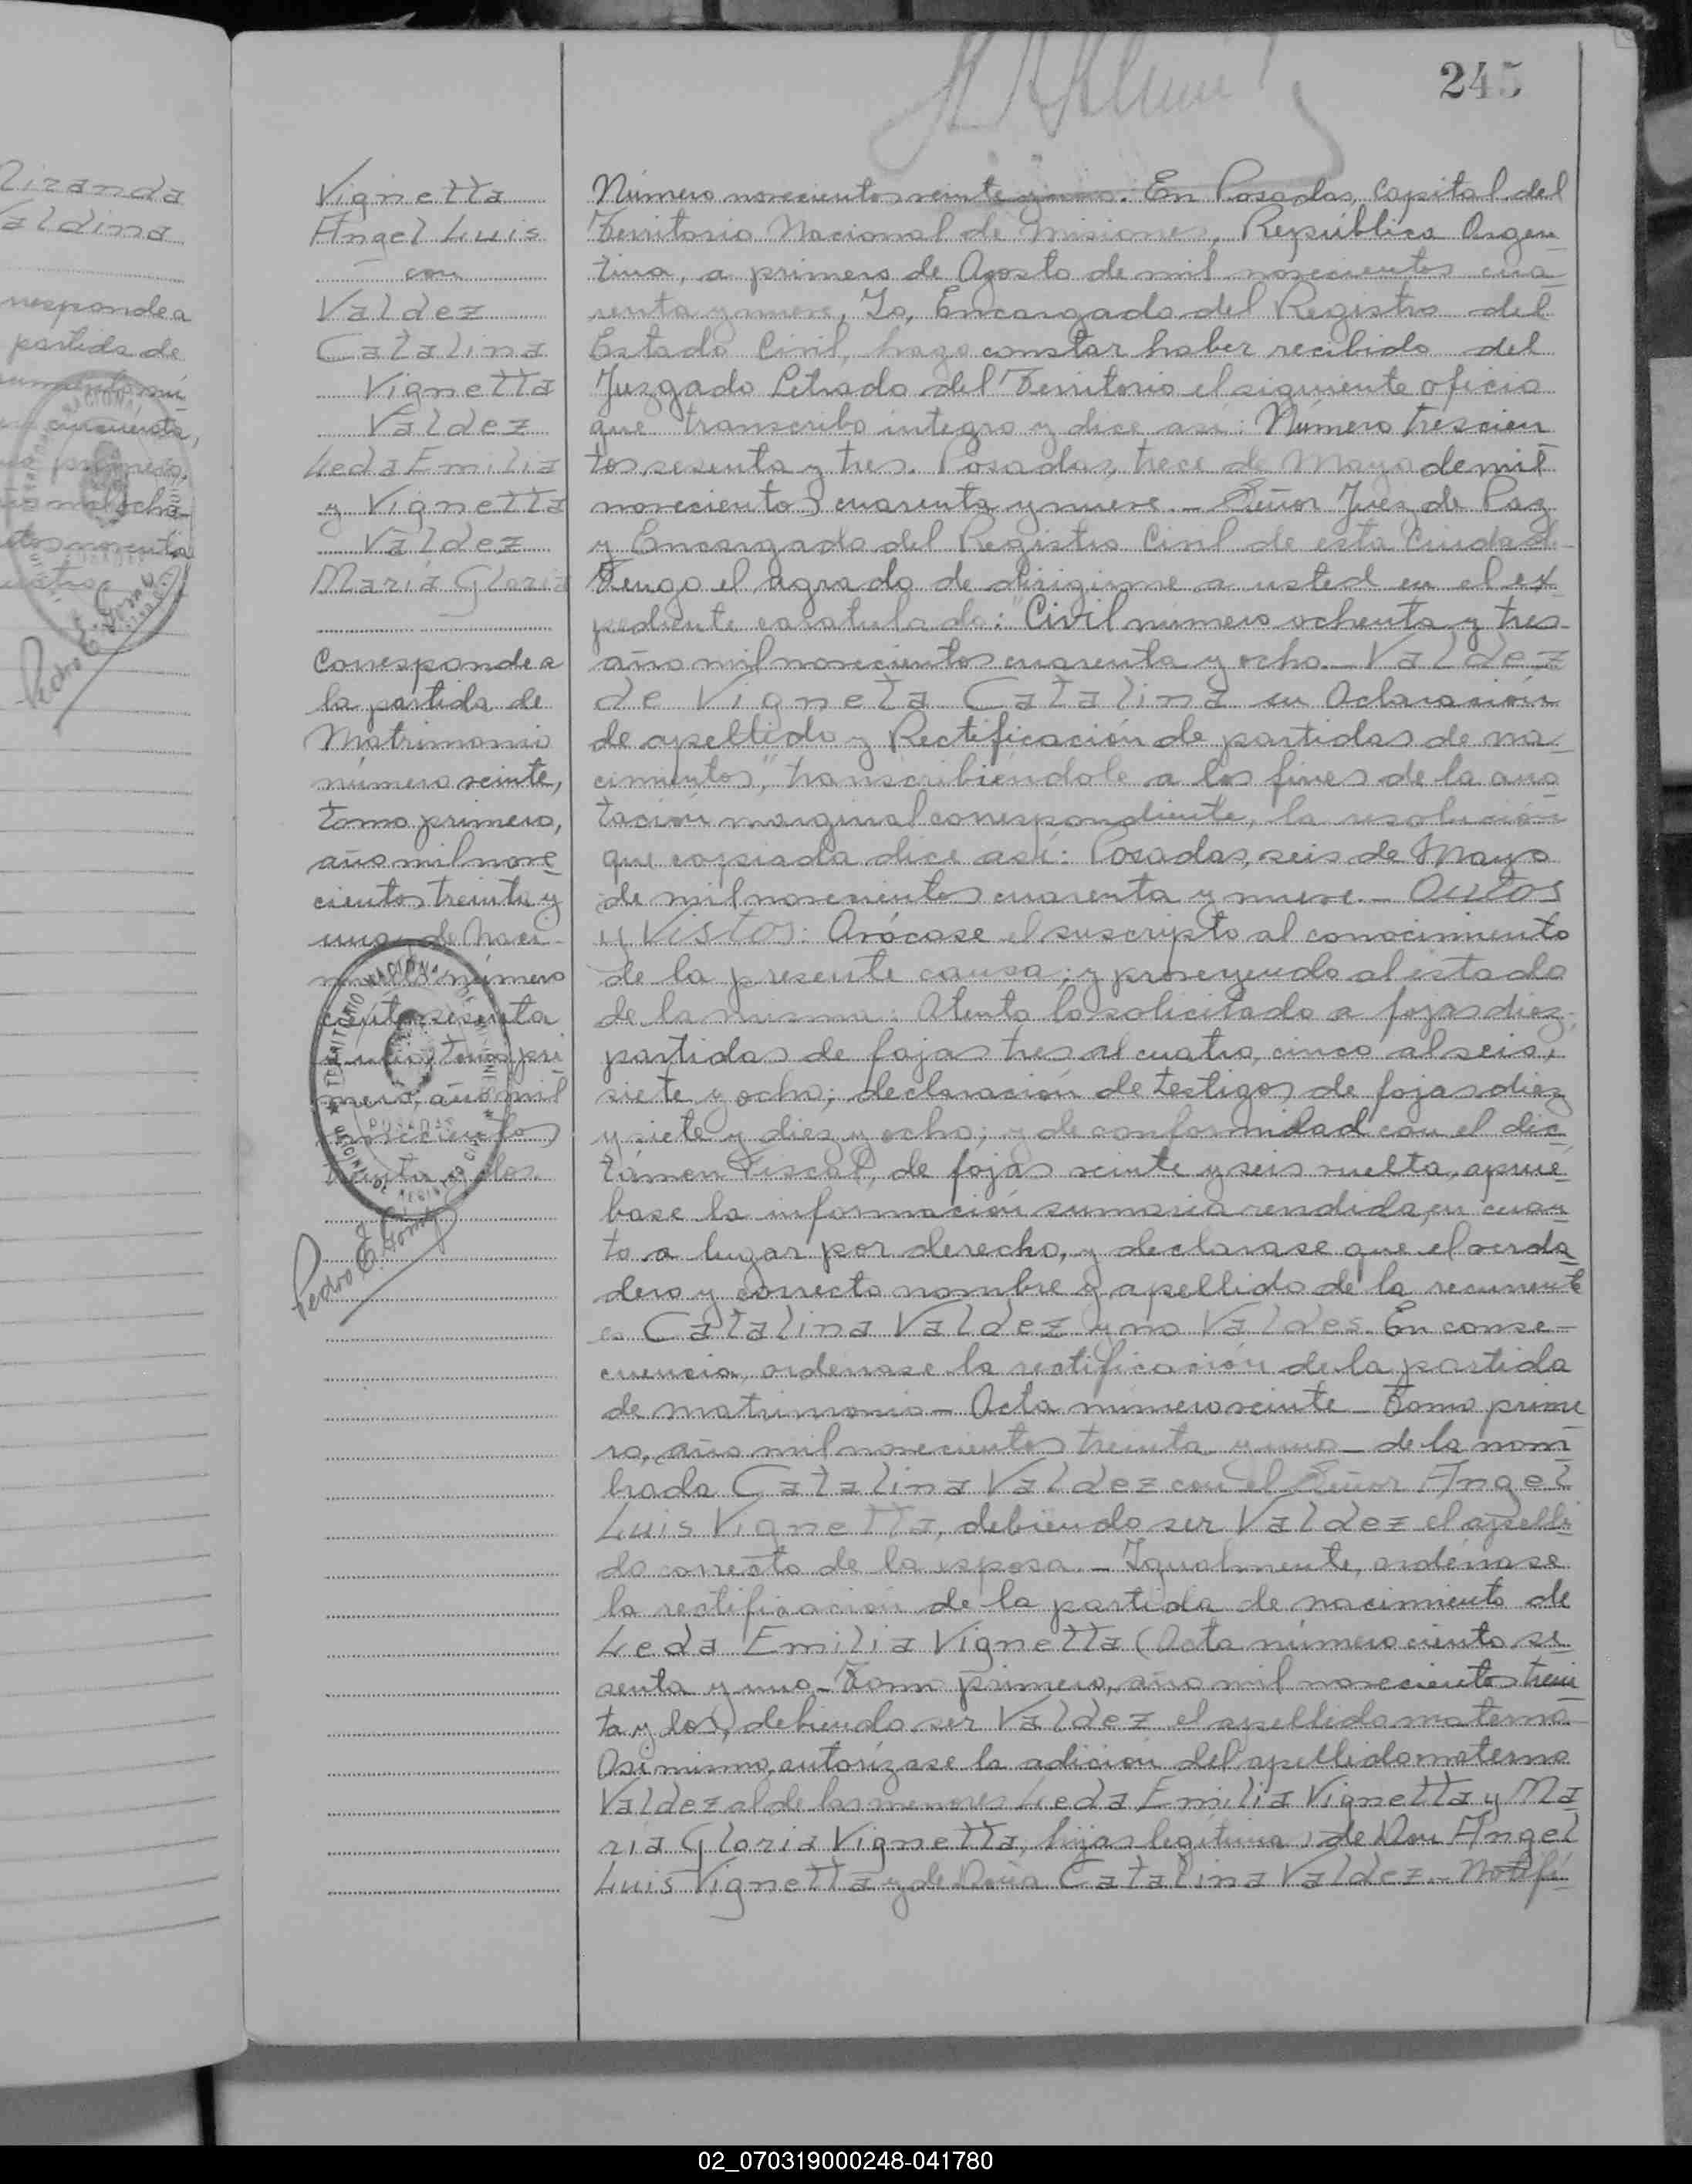 245
Miranda
Valdina
responde a
partida de
cincuenta,
primero,
mil ocho
noventa
cuatro
Pedro E. Gomez
Vignetta
Angel Luis
con
Valdez
Catalina
Vignetta
Valdez
Leda Emilia
y Vignetta
Valdez
María Gloria
Corresponde a
la partida de
Matrimonio
número veinte,
tomo primero,
año mil nove
cientos treinta y
uno y de naci
miento número
ciento sesenta
y uno, tomo pri
mero, año mil
novecientos
treinta y dos.
TERRITORIO NACIONAL DE MISIONES
POSADAS
OFICINA DE REGISTRO CIVIL
Pedro E. Gomez
Número novecientos veinte y uno. En Posadas, Capital del
Territorio Nacional de Misiones, República Argen
tina, a primero de Agosto de mil novecientos cua
renta y nueve, Yo, Encargado del Registro del
Estado Civil, hago constar haber recibido del
Juzgado Letrado del Territorio el siguiente oficio
que transcribo integro y dice así: Número trescien
tos sesenta y tres. Posadas, trece de Mayo de mil
novecientos cuarenta y nueve. – Señor Juez de Paz
y Encargado del Registro Civil de esta Ciudad.
Tengo el agrado de dirigirme a usted en el ex
pediente caratulado: "Civil número ochenta y tres
año mil novecientos cuarenta y ocho. – Valdez
de Vigneta Catalina su Aclaración
de apellido y Rectificación de partidas de na
cimientos", transcribiéndole a los fines de la ano
tación marginal correspondiente, la resolución
que copiada dice así: Posadas, seis de Mayo
de mil novecientos cuarenta y nueve. – Autos
y Vistos: Avócase el suscripto al conocimiento
de la presente causa; y proveyendo al estado
de la misma: Atento lo solicitado a fojas diez;
partidas de fojas tres al cuatro, cinco al seis,
siete y ocho; declaración de testigos de fojas diez
y siete y diez y ocho; y de conformidad con el dic
támen Fiscal, de fojas veinte y seis vuelta, aprué
base la información sumaria rendida, en cuan
to a lugar por derecho, y declarase que el verda
dero y correcto nombre y apellido de la recurrente
es Catalina Valdez y no Valdes. En conse–
cuencia, ordenase la rectificación de la partida
de matrimonio – Acta número veinte – Tomo prime
ro, año mil novecientos treinta y uno – de la nom
brada Catalina Valdez con el Señor Angel
Luis Vignetta, debiendo ser Valdez el apelli
do correcto de la esposa. – Igualmente, ordénase
la rectificación de la partida de nacimiento de
Leda Emilia Vignetta (Acta número ciento se
senta y uno – Tomo primero, año mil novecientos trein
ta y dos), debiendo ser Valdez el apellido materno.
Asimismo, autorízase la adición del apellido materno
Valdez al de las menores Leda Emilia Vignetta y Ma
ría Gloria Vignetta, hijas legítimas de Don Angel
Luis Vignetta y de Doña Catalina Valdez. – Notifí
02_070319000248-041780